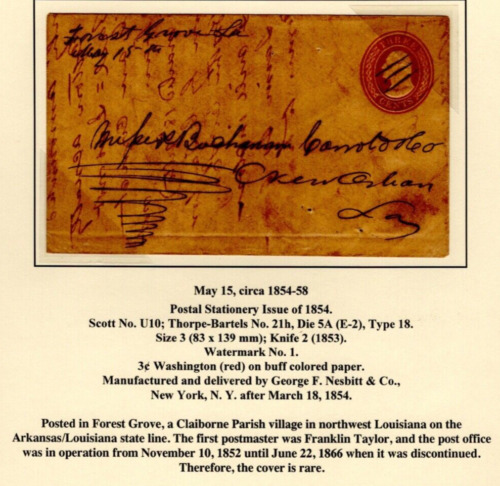 Forest Grove La
May 15th
THREE
CENTS
Buchanan Carroll & Co
New Orlean
La
May 15, circa 1854-58
Postal Stationery Issue of 1854.
Scott No. U10; Thorpe-Bartels No. 21h, Die 5A (E-2), Type 18.
Size 3 (83 x 139 mm); Knife 2 (1853).
Watermark No. 1.
3¢ Washington (red) on buff colored paper.
Manufactured and delivered by George F. Nesbitt & Co.,
New York, N. Y. after March 18, 1854.
Posted in Forest Grove, a Claiborne Parish village in northwest Louisiana on the
Arkansas/Louisiana state line. The first postmaster was Franklin Taylor, and the post office
was in operation from November 10, 1852 until June 22, 1866 when it was discontinued.
Therefore, the cover is rare.